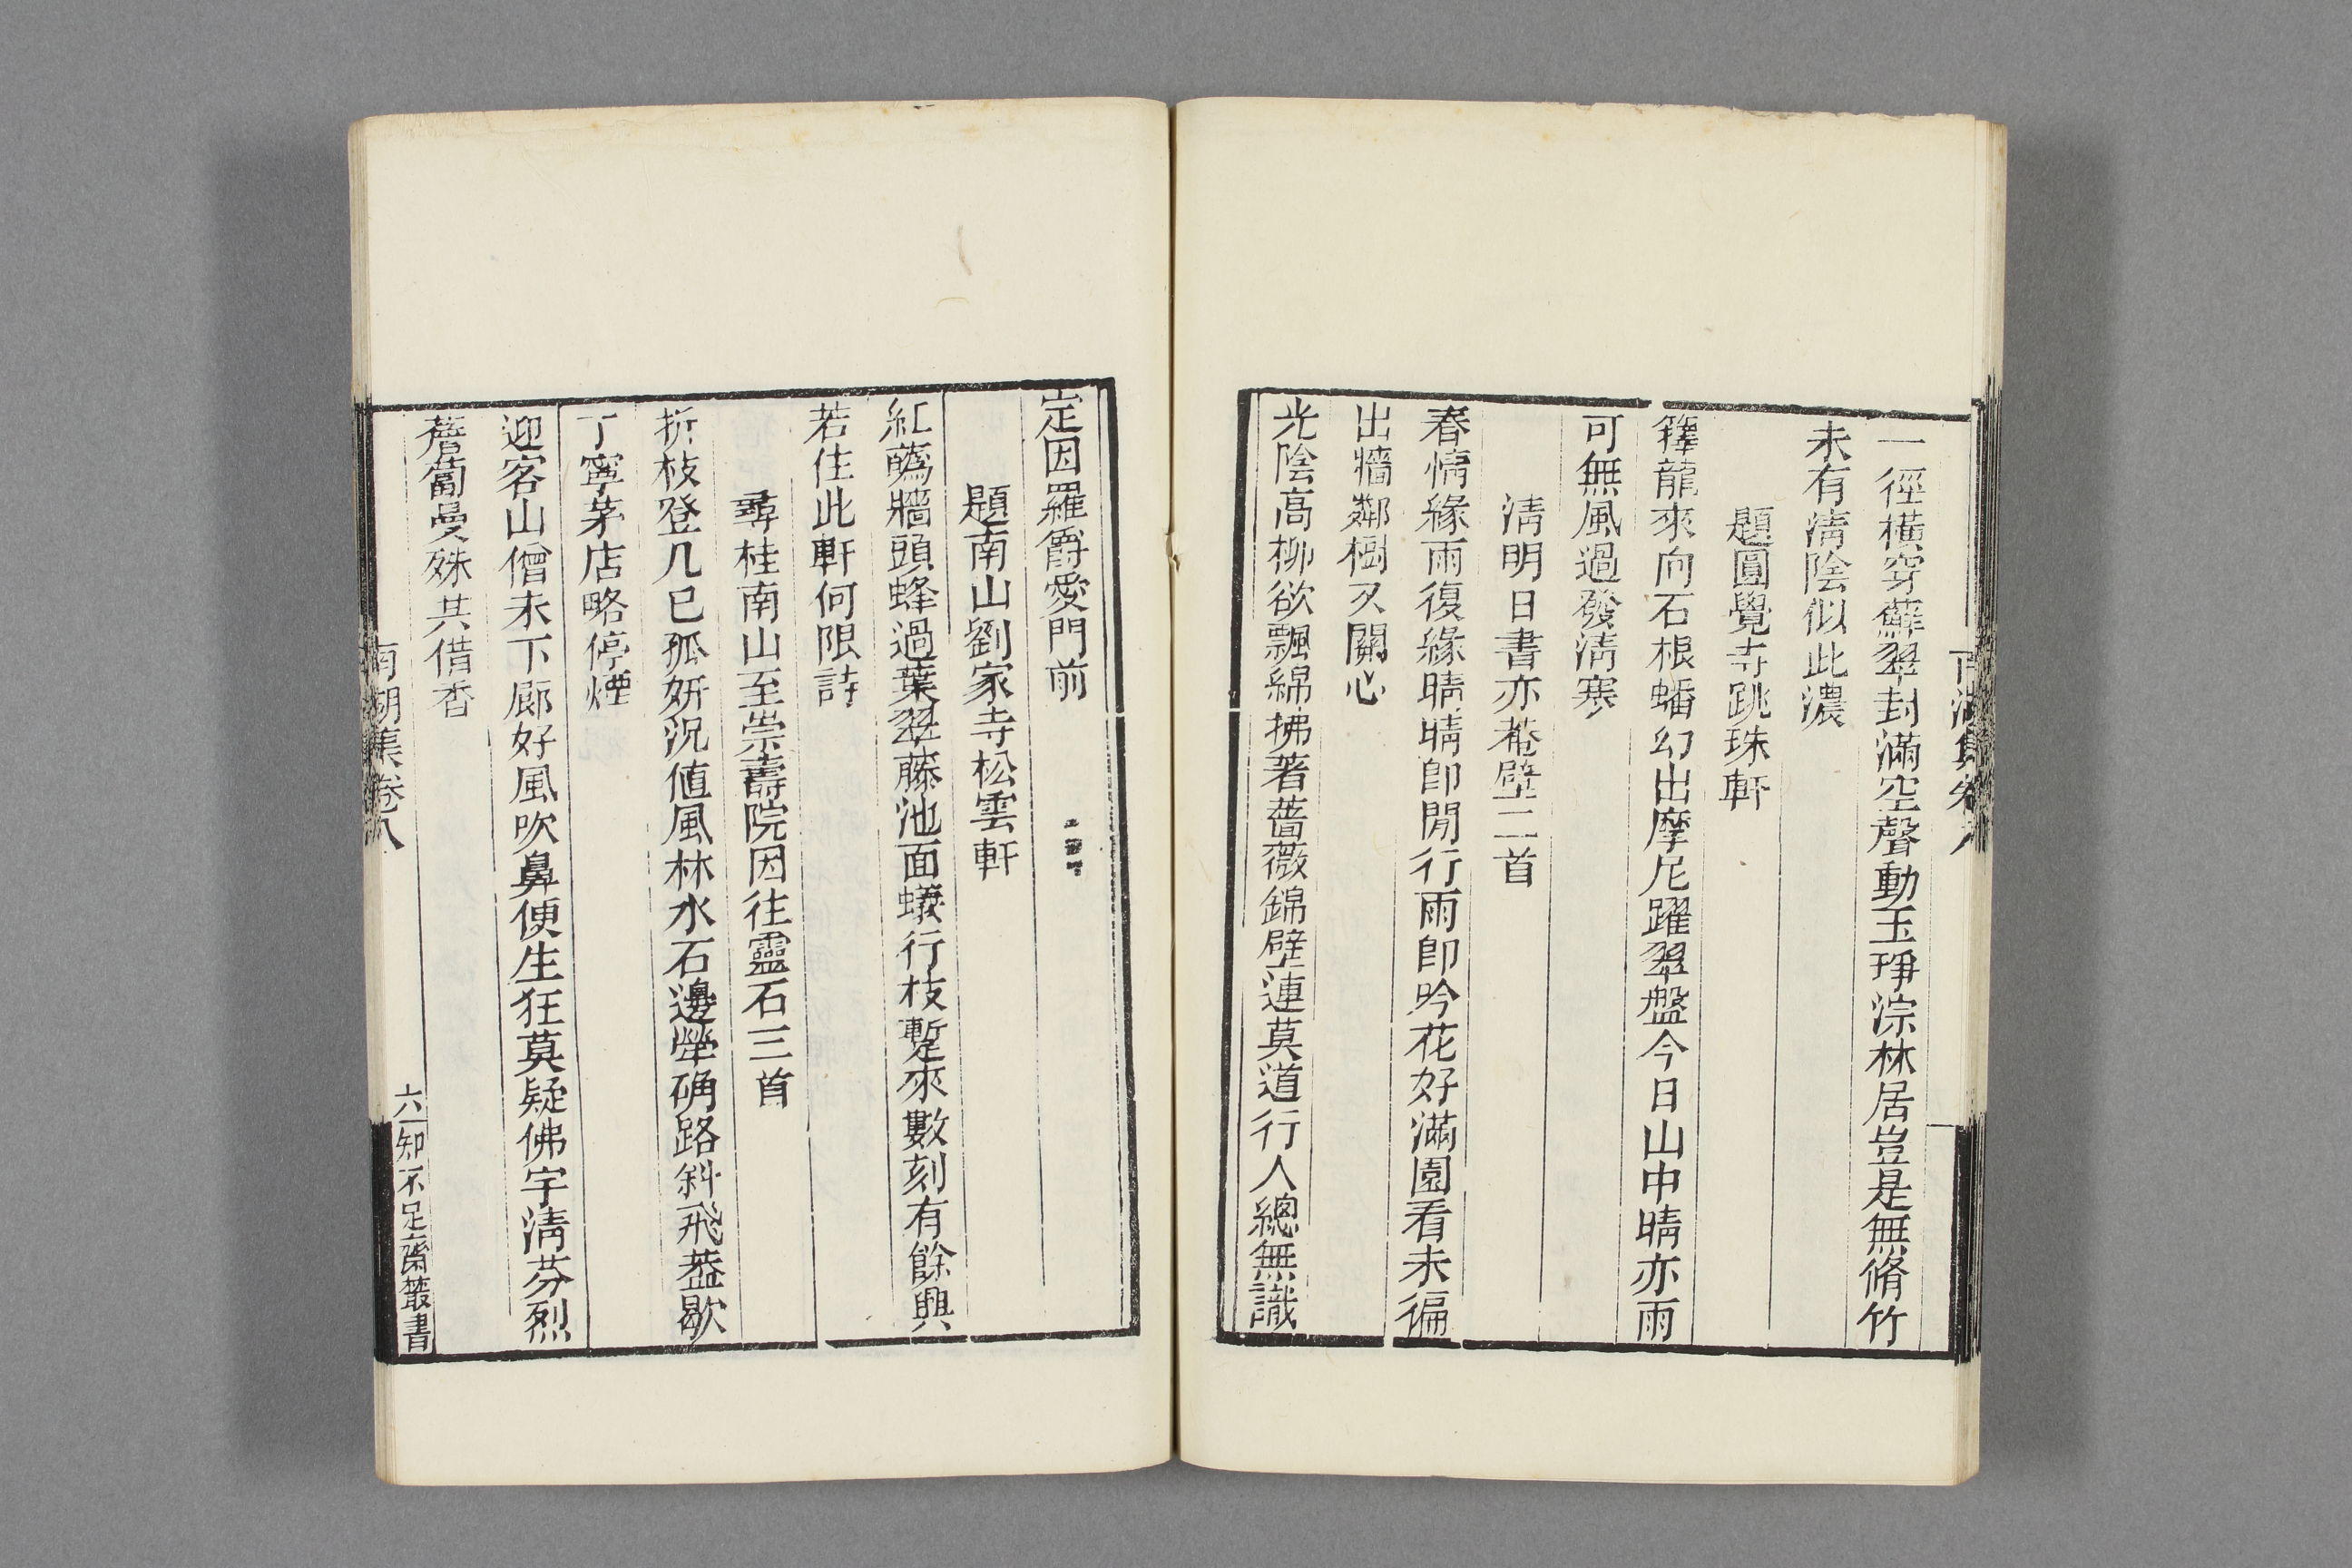 一徑橫穿蘚翠封滿空聲動玉琤淙林居豈是無脩竹
未有淸陰似此濃
題圓覺寺跳珠軒
籜龍來向石根蟠幻出摩尼躍翠盤今日山中晴亦雨
可無風過發淸寒
淸明日書亦菴壁二首
春情緣雨復緣晴晴卽閒行雨卽吟花好滿園看未徧
出牆鄰樹又關心
光陰高柳欲飄綿拂著薔薇錦壁連莫道行人總無識
定因羅爵愛門前
題南山劉家寺松雲軒
紅蔫牆頭蜂過葉翠藤池面蟻行枝蹔來數刻有餘興
若住此軒何限詩
尋桂南山至崇壽院因往靈石三首
折枝登几已孤妍況値風林水石邊犖确路斜飛葢歇
丁寧茅店略停煙
迎客山僧未下廊好風吹鼻便生狂莫疑佛宇淸芬烈
薝蔔曼殊共借香
南湖集卷八
六
知不足齋叢書